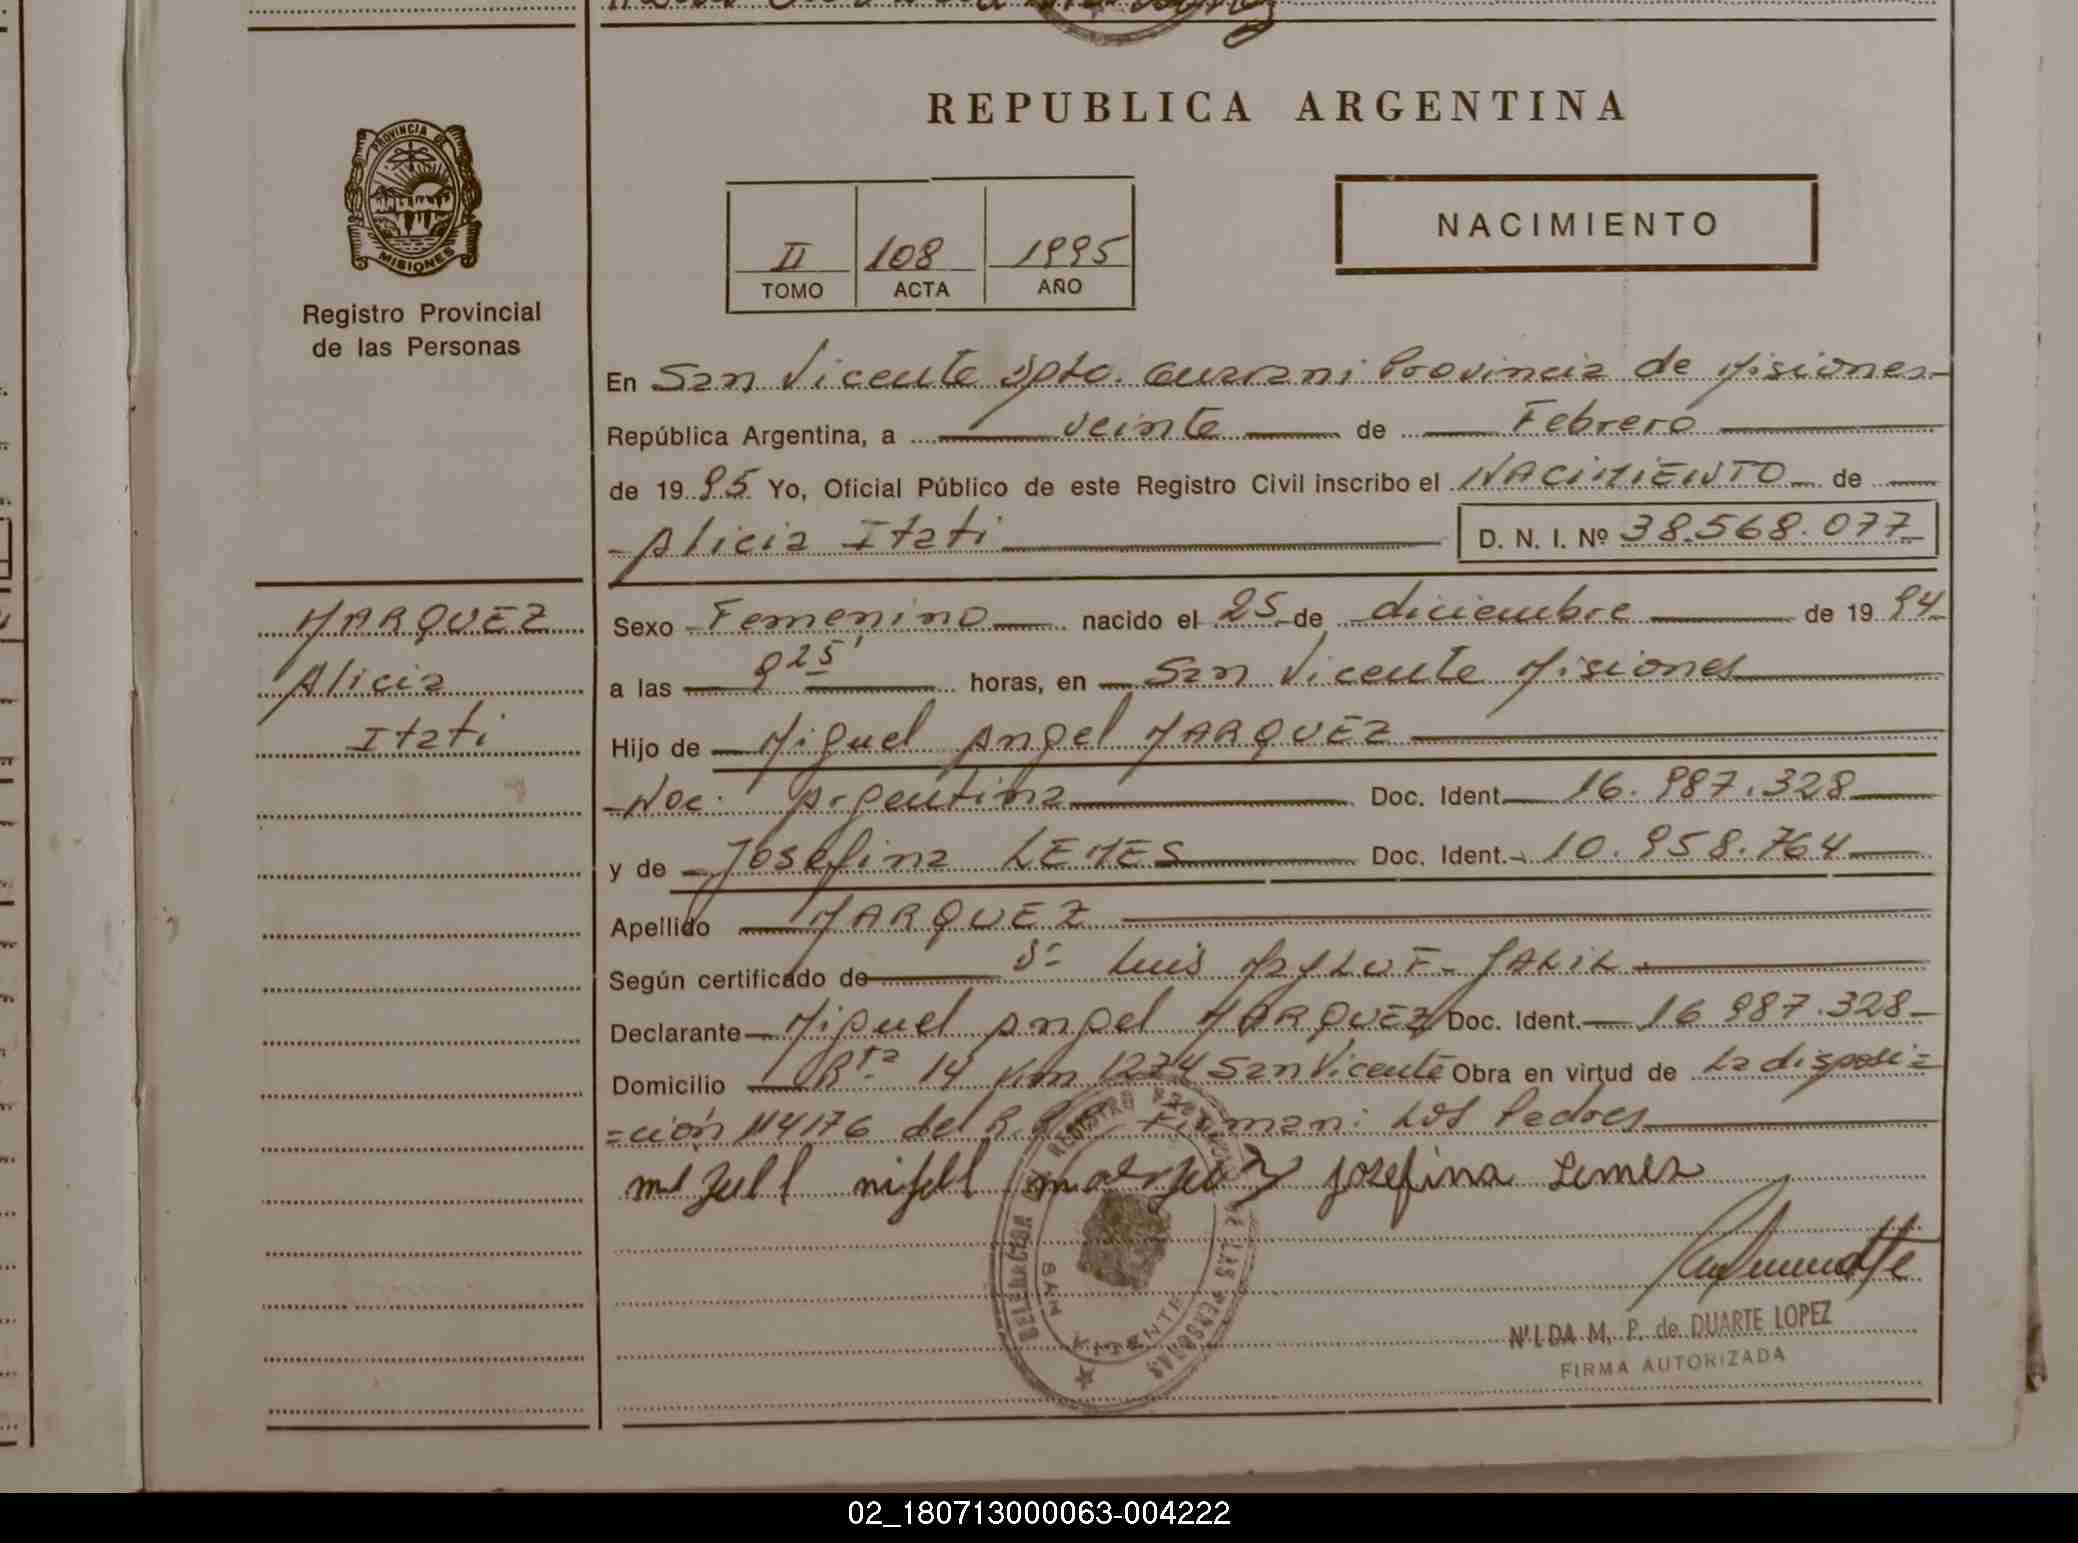 REPUBLICA ARGENTINA
PROVINCIA DE
MISIONES
Registro Provincial
de las Personas
II 108 1995
TOMO ACTA AÑO
NACIMIENTO
En San Vicente Dpto. Guarani Provincia de Misiones
República Argentina, a veinte de Febrero
de 1995 Yo, Oficial Público de este Registro Civil inscribo el NACIMIENTO de
Alicia Itati D. N. I. Nº 38.568.077
MARQUEZ
Alicia
Itati
Sexo Femenino nacido el 25 de diciembre de 1994
a las 8 25' horas, en San Vicente Misiones
Hijo de Miguel Angel MARQUEZ
Nac. Argentina Doc. Ident. 16.987.328
y de Josefina LEMES Doc. Ident. 10.958.764
Apellido MARQUEZ
Según certificado de Dr Luis JALIL
Declarante Miguel Angel MARQUEZ Doc. Ident. 16 987.328
Domicilio Rta 14 Km 1274 San Vicente Obra en virtud de La disposi=
=ción 114176 del Firman: Los Padres
Josefina Lemes
REGISTRO PROVINCIAL DE LAS PERSONAS
SAN VICENTE
NILDA M. P. de DUARTE LOPEZ
FIRMA AUTORIZADA
02_180713000063-004222